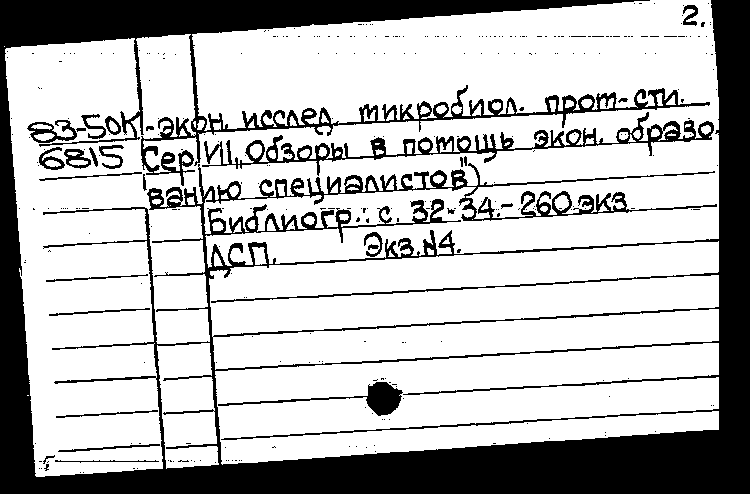 2.
83-50К -экон. исслед. микробиол. пром-сти.
6815 Сер. VII „Обзоры в помощь экон. образо-
ванию специалистов").
Библиогр.: с. 32-34.- 260 экз
ДСП. Экз.№4.